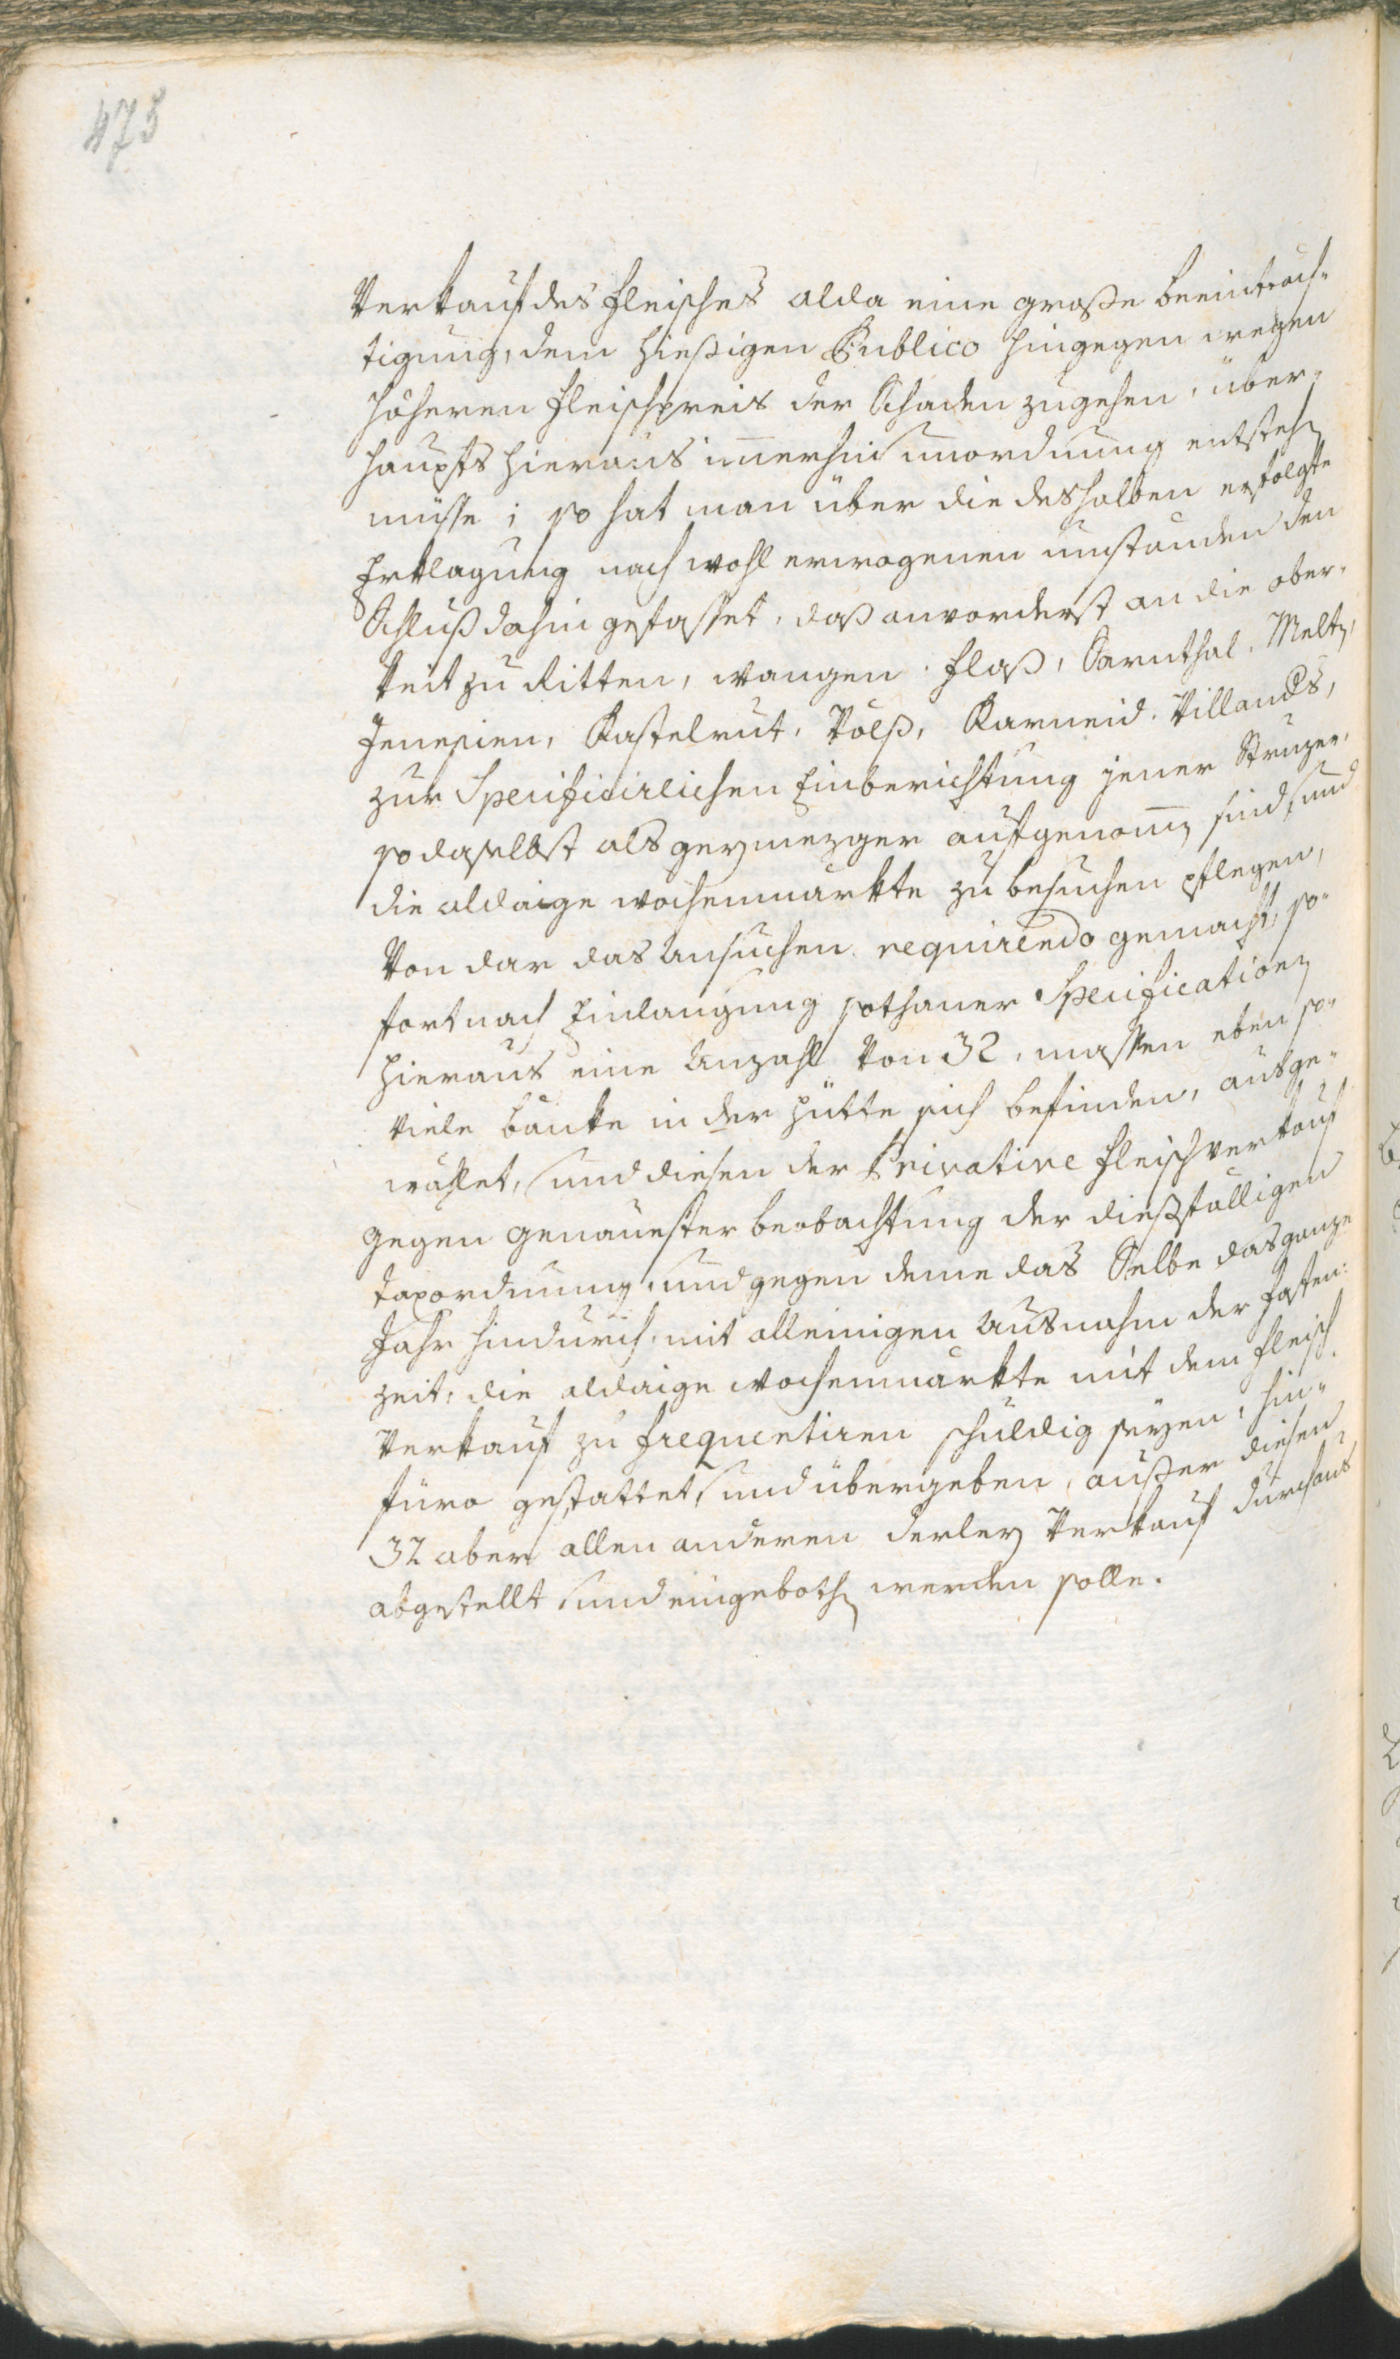 475
Verkauf des Fleisches alda eine große beeinträch¬
tigung, dem hießigen Publico hingegen wegen
höheren Fleischpreis der Schaden zugehen, über¬
haupts hieraus immerhin unordnung entstehen
müsse; so hat man über die deshalben erfolgte
Erklagung nach wohl erwogenen umständen den
Schluß dahin gefasset, daß anvorderst an die ober¬
keit zu Ritten, Wangen, Flaß, Sarnthal, Melten,
Jenesien, Kastelrut, Völß, Karneid, Villanders,
zur Specificirlichen Einberichtung jener
so daselbst als geymezger aufgenommen sind, und
die aldaige wochenmärkte zu besuchen pflegen,
Von dar das Ansuchen requirendo gemacht, so¬
fort nach Einlangung sothaner Specificationen
hieraus eine Anzahl von 32, massen eben so¬
viele bänke in der Hütte sich befinden, ausge¬
wählet, und diesen der Privative Fleischverkauf
gegen genauester beobachtung der dießfälligen
taxordnung, und gegen deme das Selbe das ganze
Jahr hindurch, mit alleinigen Ausnahm der Fasten:
zeit, die aldaige wochenmärkte mit dem Fleisch
Verkauf zu frequentiren schuldig seyen, hin¬
füro gestattet, und übergeben, außer diesen
32 aber allen anderen derley Verkauf durchaus
abgestellt und eingebothen werden solle.